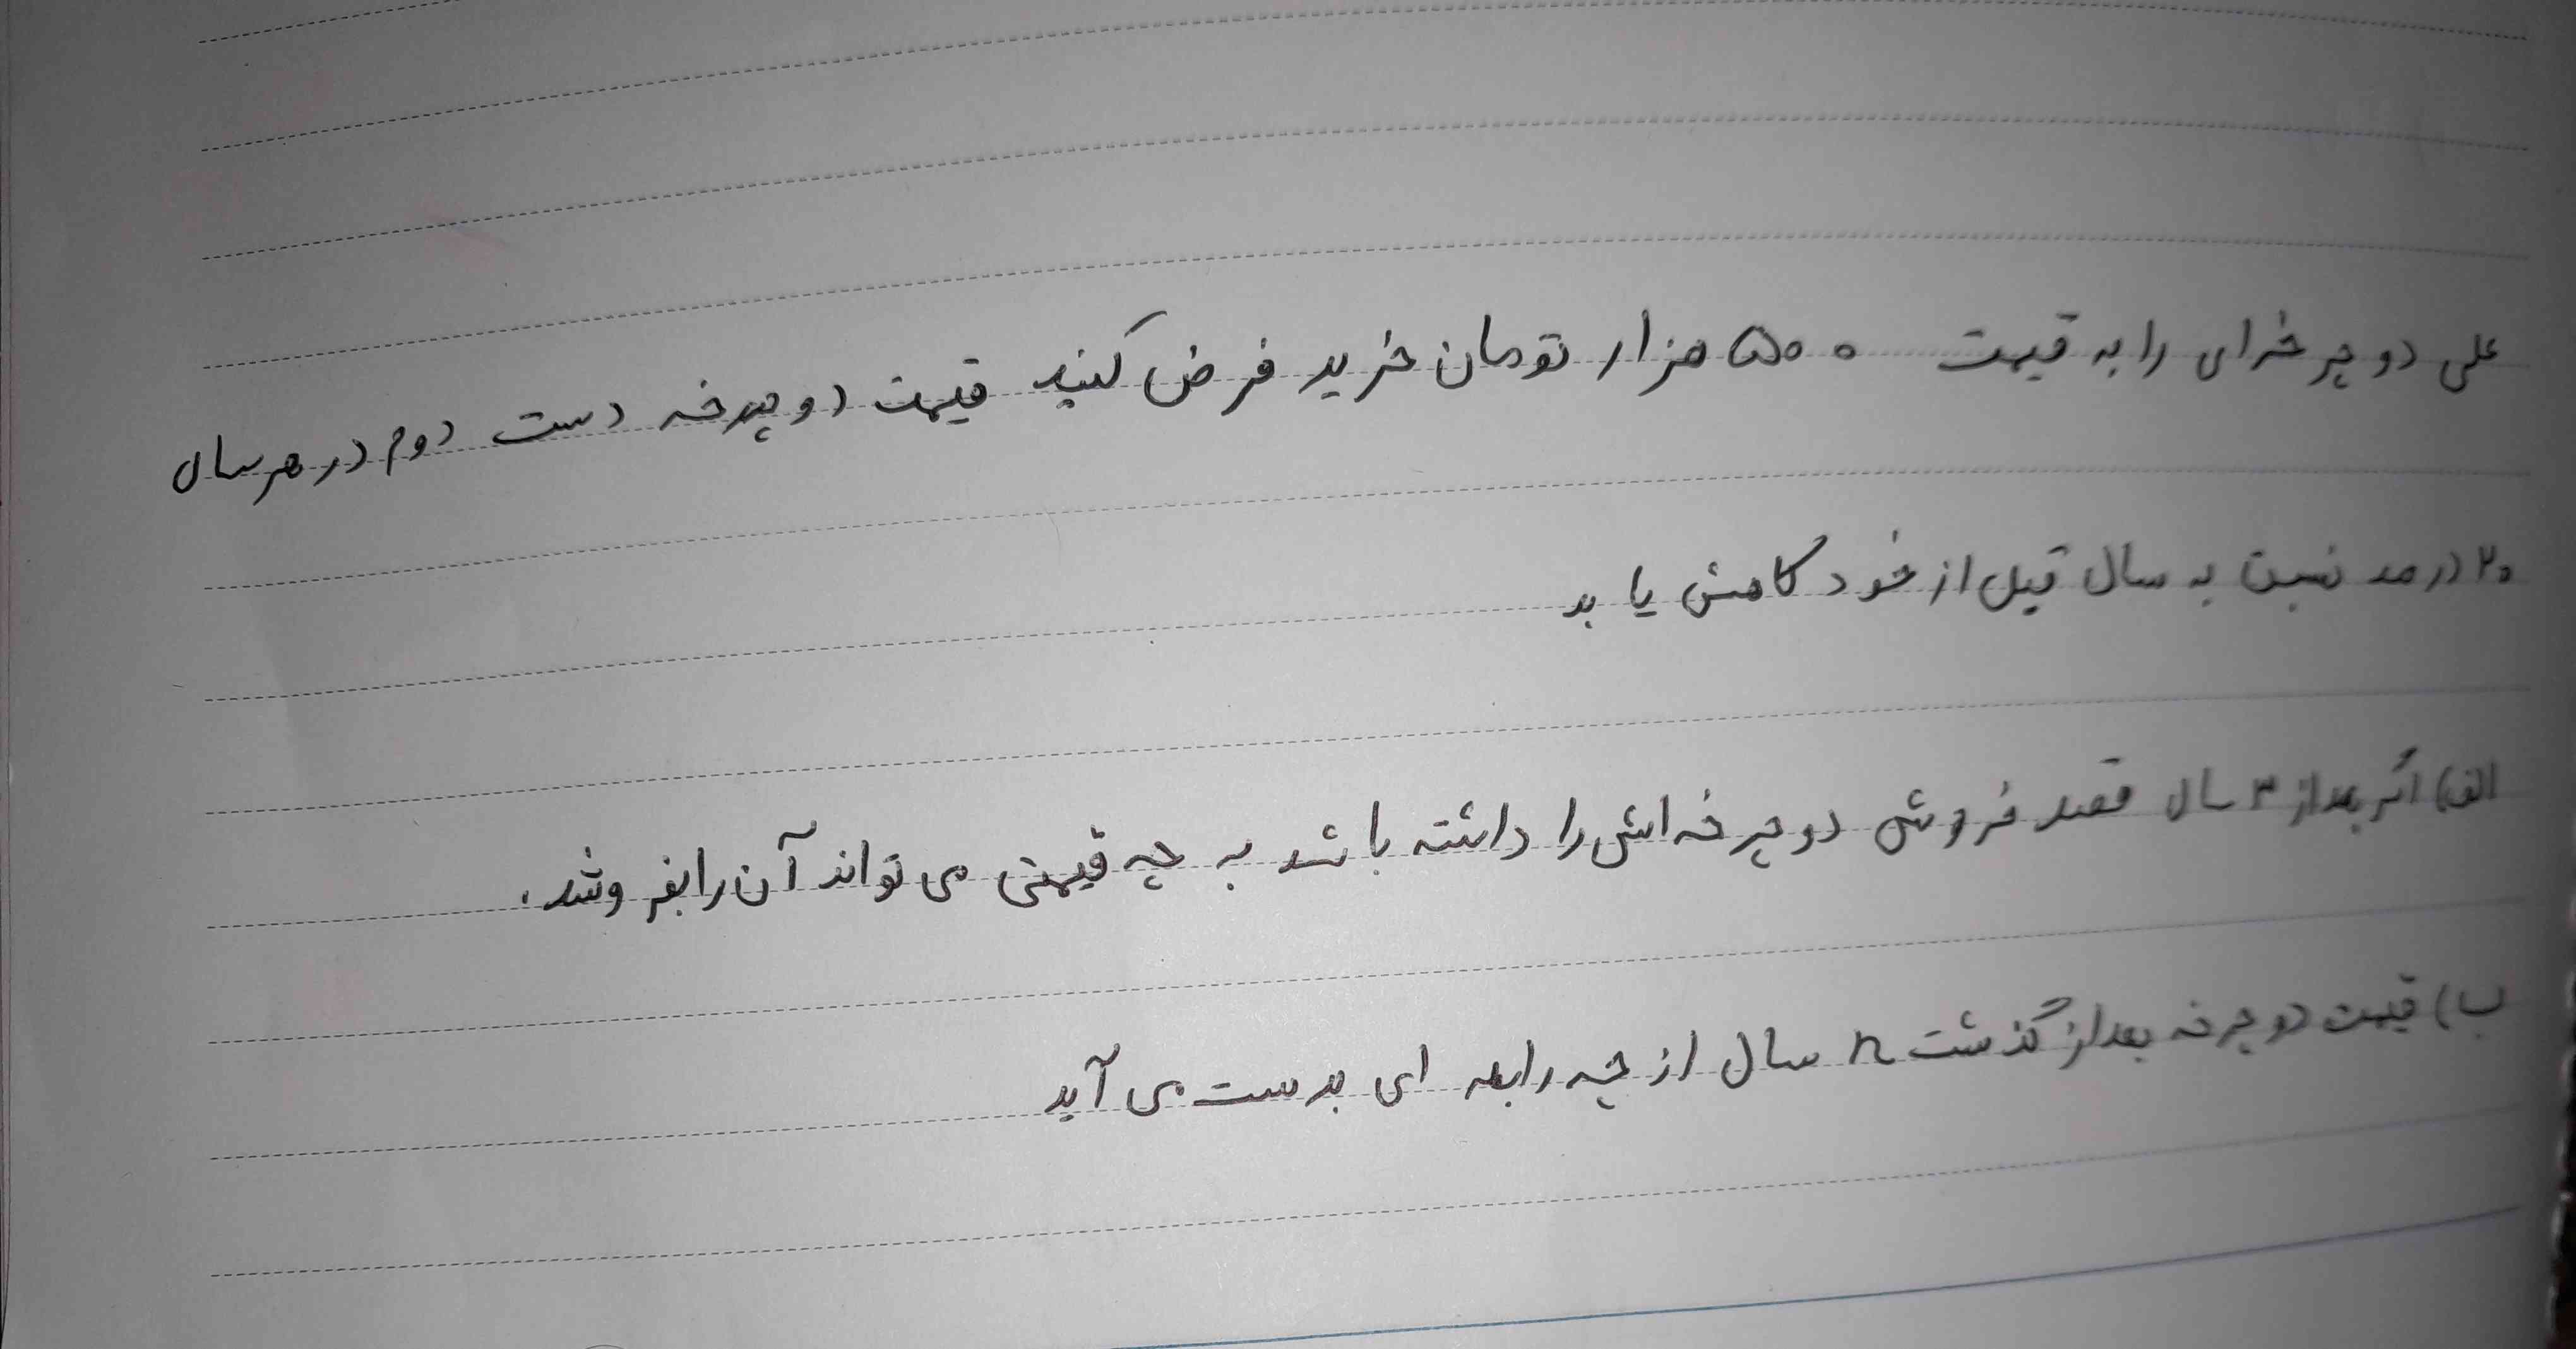 علی دوچرخه‌ای را به قیمت ۵۰۰ هزار تومان خرید فرض کنید قیمت دوچرخه دست دوم در هر سال
۲۰ درصد نسبت به سال قبل از خود کاهش یابد
الف) اگر بعد از ۳ سال قصد فروش دوچرخه‌اش را داشته باشد به چه قیمتی می تواند آن را بفروشد.
ب) قیمت دوچرخه بعد از گذشت n سال از چه رابطه ای بدست می آید